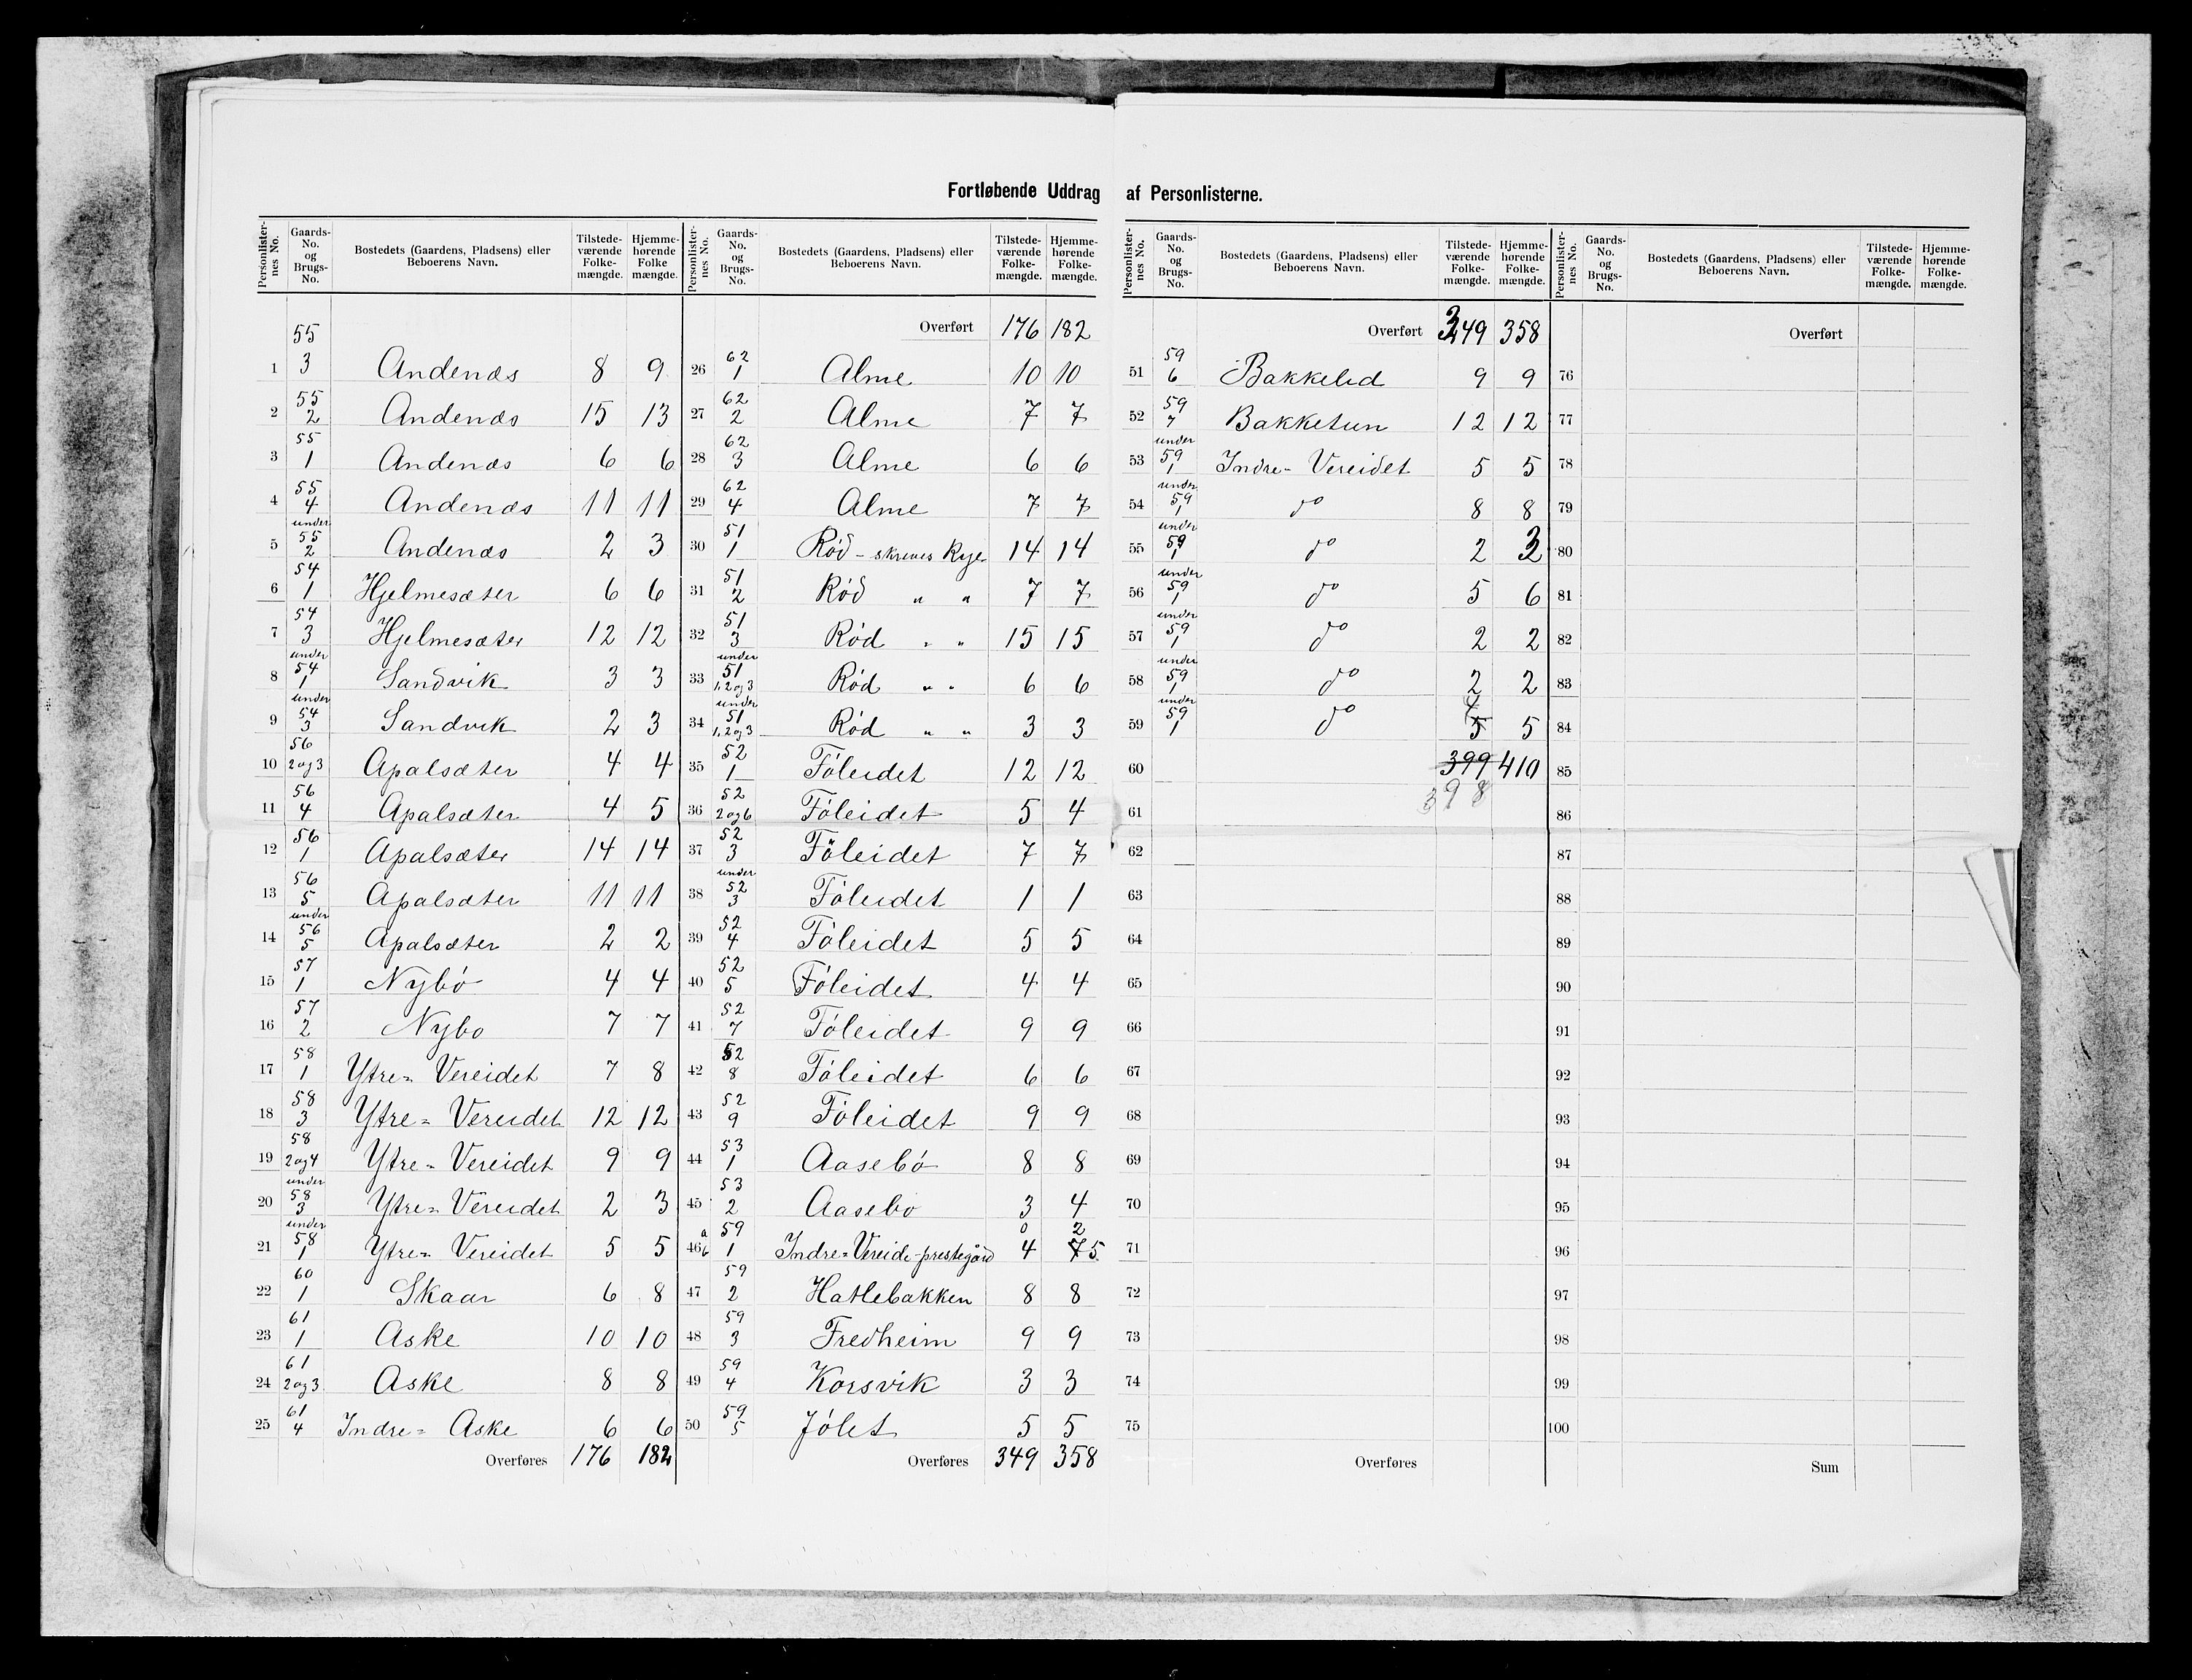 Fortløbende Uddrag af Personlisterne.
Personlister-nes No. | Gaards-No. og Brugs-No. | Bostedets (Gaardens, Pladsens) eller Beboerens Navn. | Tilstede-værende Folke-mængde. | Hjemme-hørende Folke mængde.
1 | 55 3 | Andenæs | 8 | 9
2 | 55 2 | Andenæs | 15 | 13
3 | 55 1 | Andenæs | 6 | 6
4 | 55 4 | Andenæs | 11 | 11
5 | under 55 2 | Andenæs | 2 | 3
6 | 54 1 | Hjelmesæter | 6 | 6
7 | 54 3 | Hjelmesæter | 12 | 12
8 | under 54 1 | Sandvik | 3 | 3
9 | under 54 3 | Sandvik | 2 | 3
10 | 56 2og3 | Apalsæter | 4 | 4
11 | 56 4 | Apalsæter | 4 | 5
12 | 56 1 | Apalsæter | 14 | 14
13 | 56 5 | Apalsæter | 11 | 11
14 | under 56 5 | Apalsæter | 2 | 2
15 | 57 1 | Nybø | 4 | 4
16 | 57 2 | Nybo | 7 | 7
17 | 58 1 | Ytre= Vereidet | 7 | 8
18 | 58 3 | Ytre= Vereidet | 12 | 12
19 | 58 2og4 | Ytre= Vereidet | 9 | 9
20 | under 58 3 | Ytre= Vereidet | 2 | 3
21 | under 58 1 | Ytre= Vereidet | 5 | 5
22 | 60 1 | Skaar | 6 | 8
23 | 61 1 | Aske | 10 | 10
24 | 61 2og3 | Aske | 8 | 8
25 | 61 4 | Indre= Aske | 6 | 6
Overføres | 176 | 182
Personlister-nes No. | Gaards-No. og Brugs-No. | Bostedets (Gaardens, Pladsens) eller Beboerens Navn. | Tilstede-værende Folke-mængde. | Hjemme-hørende Folke-mængde.
Overført | 176 | 182
26 | 62 1 | Alme | 10 | 10
27 | 62 2 | Alme | 7 | 7
28 | 62 3 | Alme | 6 | 6
29 | 62 4 | Alme | 7 | 7
30 | 51 1 | Rød - skrives Rye | 14 | 14
31 | 51 2 | Rød " " | 7 | 7
32 | 51 3 | Rød " " | 15 | 15
33 | under 51 1,2og3 | Rød " " | 6 | 6
34 | under 51 1,2og3 | Rød " " | 3 | 3
35 | 52 1 | Føleidet | 12 | 12
36 | 52 2og6 | Føleidet | 5 | 4
37 | 52 3 | Føleidet | 7 | 7
38 | under 52 3 | Føleidet | 1 | 1
39 | 52 4 | Føleidet | 5 | 5
40 | 52 5 | Føleidet | 4 | 4
41 | 52 7 | Føleidet | 9 | 9
42 | 52 8 | Føleidet | 6 | 6
43 | 52 9 | Føleidet | 9 | 9
44 | 53 1 | Aasebø | 8 | 8
45 | 53 2 | Aasebo | 3 | 4
46 a b | 59 1 | Indre=Vereide-prestegård | 0 4 | 2 7 5
47 | 59 2 | Hatlebakken | 8 | 8
48 | 59 3 | Fredheim | 9 | 9
49 | 59 4 | Korsvik | 3 | 3
50 | 59 5 | Jølet | 5 | 5
Overføres | 349 | 358
Personlister-nes No. | Gaards-No. og Brugs-No. | Bostedets (Gaardens, Pladsens) eller Beboerens Navn. | Tilstede-værende Folke-mængde. | Hjemme-hørende Folke-mængde.
Overført | 349 | 358
51 | 59 6 | Bakkelid | 9 | 9
52 | 59 7 | Bakketun | 12 | 12
53 | under 59 1 | Indre- Vereidet | 5 | 5
54 | under 59 1 | do | 8 | 8
55 | under 59 1 | do | 2 | 3
56 | under 59 1 | do | 5 | 6
57 | under 59 1 | do | 2 | 2
58 | under 59 1 | do | 2 | 2
59 | under 59 1 | do | 4 5 | 5
60 | 399 | 410
61 | 398
62
63
64
65
66
67
68
69
70
71
72
73
74
75
Overføres
Personlister-nes No. | Gaards-No. og Brugs-No. | Bostedets (Gaardens, Pladsens) eller Beboerens Navn. | Tilstede-værende Folke-mængde. | Hjemme-hørende Folke-mængde.
Overført
76
77
78
79
80
81
82
83
84
85
86
87
88
89
90
91
92
93
94
95
96
97
98
99
100
Sum